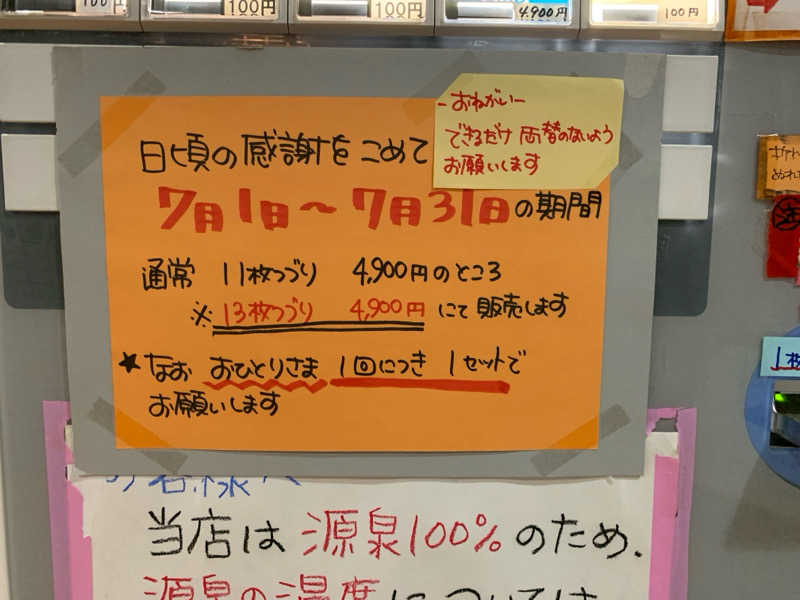 100
100円
100円
4,900円
100円
-おねがい-
できるだけ 両替のないよう
お願いします
日頃の感謝をこめて
7月1日～7月31日の期間
通常 11枚つづり 4,900円のところ
※13枚つづり 4,900円にて販売します
★なお おひとりさま 1回につき 1セットで
お願いします
当店は源泉100%のため、
源泉の温度については